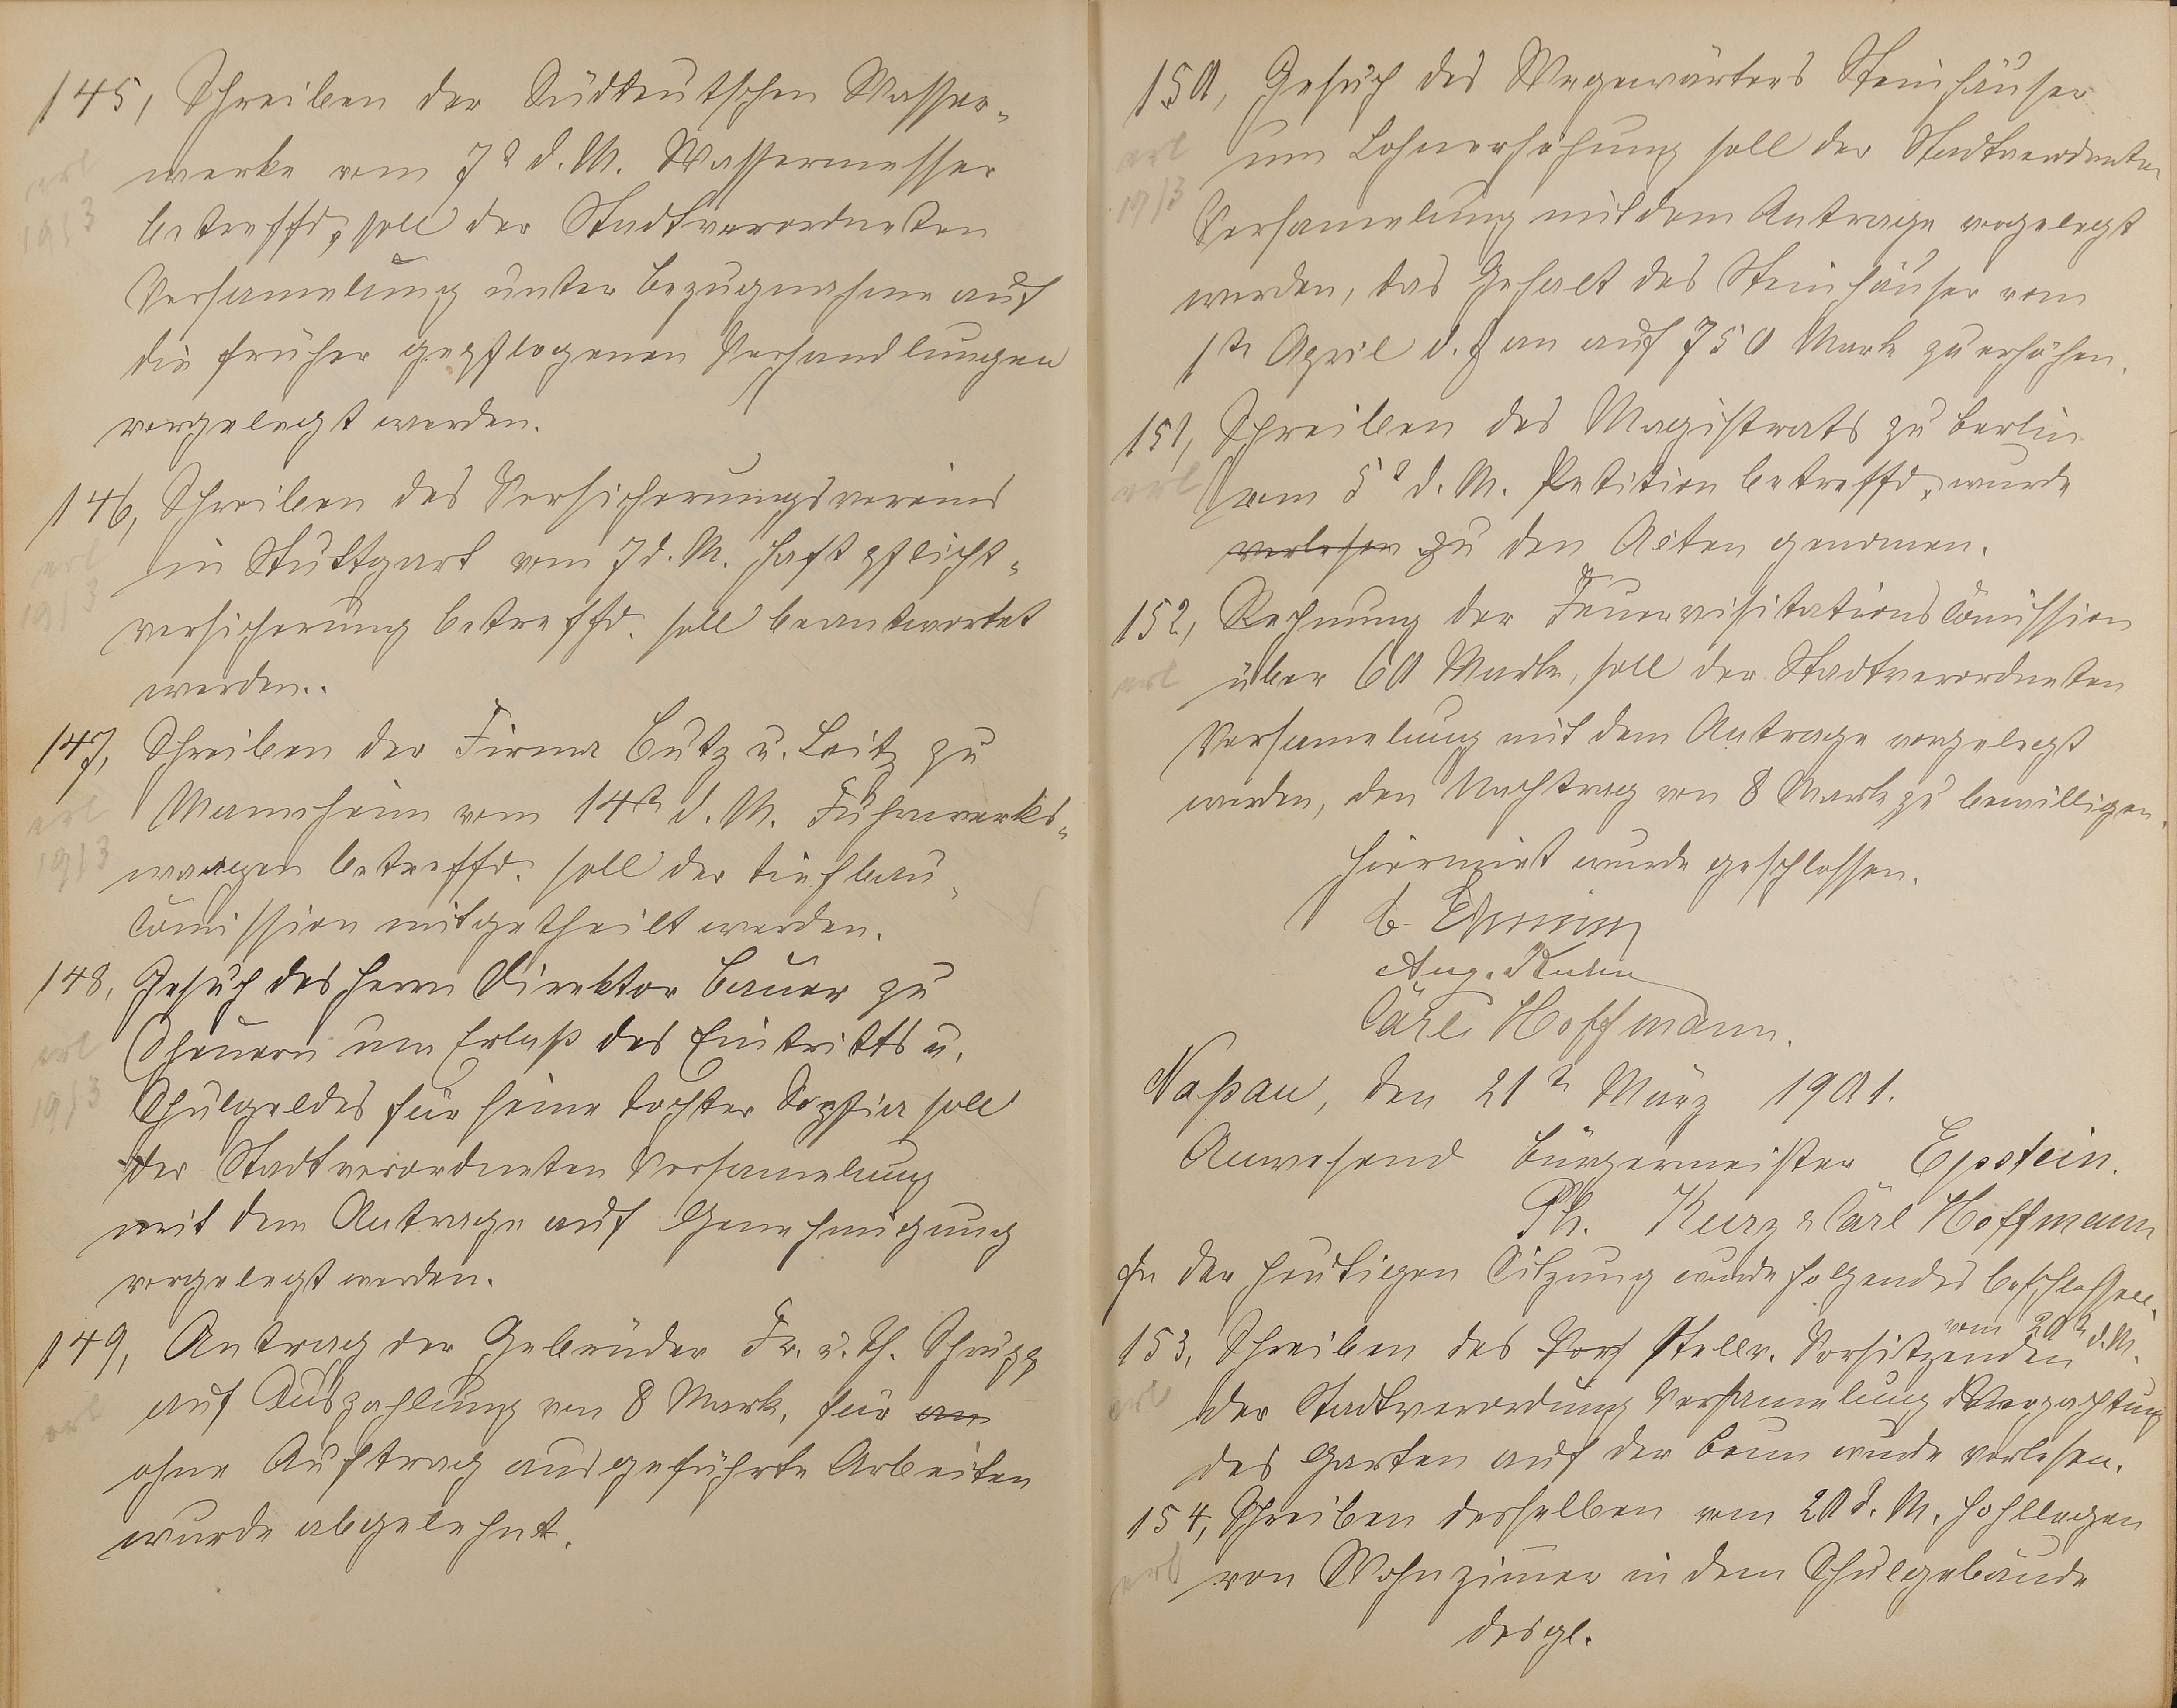 145, Schreiben der Süddeutschen Wasser-
werke vom 7t d. M. Wassermesser
erl
19/3
betreffd. soll der Stadtverordneten
Versamelung unter Bezugnahme auf
die früher gepflogenen Verhandlungen
vorgelegt werden.
146, Schreiben des Versicherungsvereins
in Stuttgart vom 7 d. M. Haftpflicht-
erl
19/3
versicherung betreffd. soll beantwortet
werden.
147, Schreiben der Firma Butz u. Leitz zu
Mannheim vom 14t d. M. Fuhrwerks-
erl
19/3
waagen betreffd. soll der Tiefbau-
Comission mitgetheilt werden.
148, Gesuch des Herrn Direktor Bauer zu
Scheuern um Erlaß des Eintritts u.
erl
19/3
Schulgeldes für seine Tochter Sophia soll
der Stadtverordneten Versamelung
mit dem Antrage auf Genehmigung
vorgelegt werden.
149, Antrag der Gebrüder Fr. u. Th. Schrupp
auf Auszahlung von 8 Mark, für
erl
ohne Auftrag ausgeführte Arbeiten
wurde abgelehnt.
150, Gesuch des Wegewärters Steinhäuser
um Lohnerhöhung soll der Stadtverordneten
erl
19/3
Versamelung mit dem Antrage vorgelegt
werden, das Gehalt des Steinhäuser vom
1tn April d. J an auf 750 Mark zu erhöhen.
151, Schreiben des Magistrats zu Berlin
erl
vom 5t d. M. Petition betreffd. wurde
verlesen zu den Acten genomen.
152, Rechnung der Feuervisitations Comission
erl
über 60 Mark, soll der Stadtverordneten
Versamelung mit dem Antrage vorgelegt
werden, den Nachtrag von 8 Mark zu bewilligen.
Hiermit wurde geschlossen.
Aug.
Carl Hoffmann.
Naßau, den 21t März 1901.
Anwesend Bürgermeister Epstein.
Ph. Kurz & Carl Hoffmann
In der heutigen Sitzung wurde folgendes beschlossen.
153, Schreiben des stellv. Vorsitzenden vom 20t d. M.
erl
der Stadtverordnung Versamelung Verpachtung
des Garten auf der wurde verlesen.
154, Schreiben desselben vom 20 d. M. Hohllegen
erl
von Wohnzimmer in dem Schulgebäude
desgl.